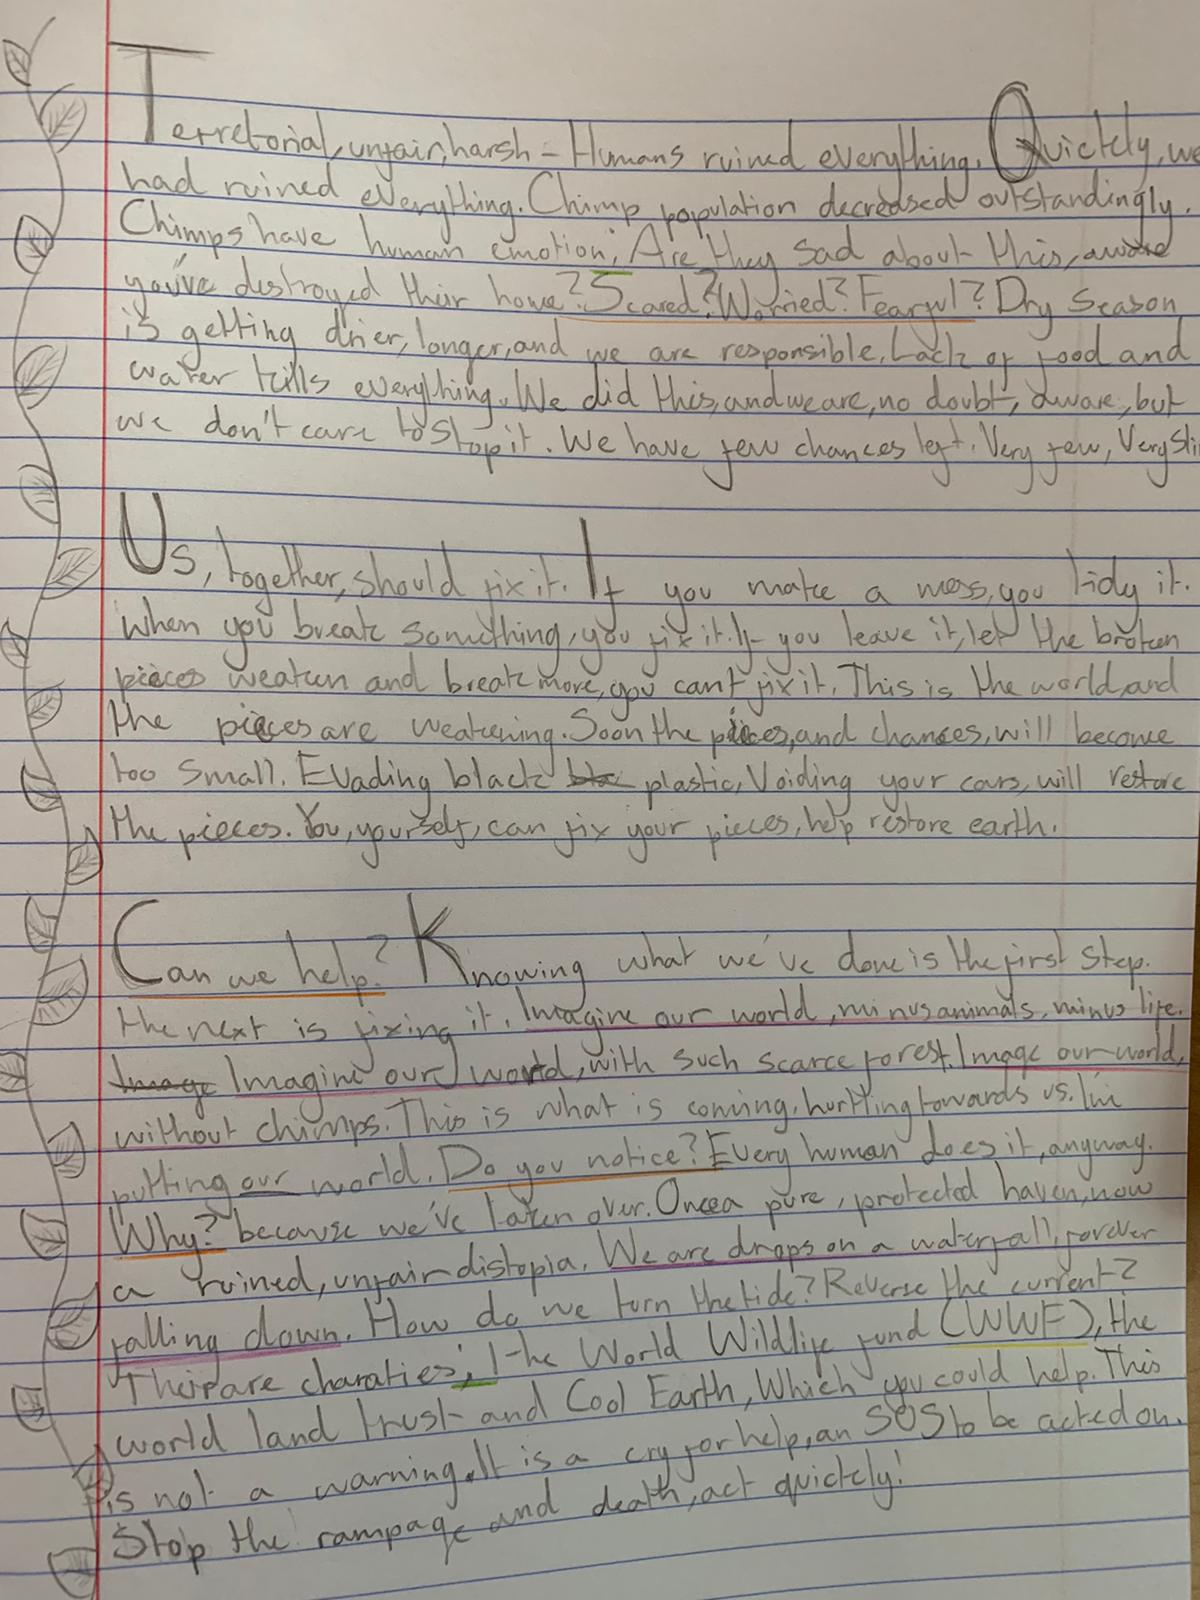 Terretorial, unfair, harsh - Humans ruined everything. Quickly, we
had ruined everything. Chimp population decreased outstandingly.
Chimps have human emotion; Are they sad about this, aware
you've destroyed their home? Scared? Worried? Fearful? Dry season
is getting drier, longer, and we are responsible. Lack of food and
water kills everything. We did this, and we are, no doubt, aware, but
we don't care to stop it. We have few chances left. Very few, Very
Us, together, should fix it. If you make a mess, you tidy it.
When you break something, you fix it. If you leave it, let the broken
pieces weaken and break more, you can't fix it. This is the world, and
the pieces are weakening. Soon the pieces, and chances, will become
too small. Evading black plastic, Voiding your cars, will restore
the pieces. You, yourself, can fix your pieces, help restore earth.
Can we help? Knowing what we've done is the first step.
the next is fixing it. Imagine our world, minus animals, minus life.
Image Imagine our world, with such scarce forest. Image our world,
without chimps. This is what is coming, hurtling towards us. I'm
putting our world. Do you notice? Every human does it, anyway.
Why? because we've taken over. Once a pure, protected haven, now
a ruined, unfair distopia. We are drops on a waterfall, forever
falling down. How do we turn the tide? Reverse the current?
Their are charaties; the World Wildlife fund (WWF), the
world land trust and Cool Earth, Which you could help. This
is not a warning. It is a cry for help, an SOS to be acted on.
Stop the rampage and death, act quickly!